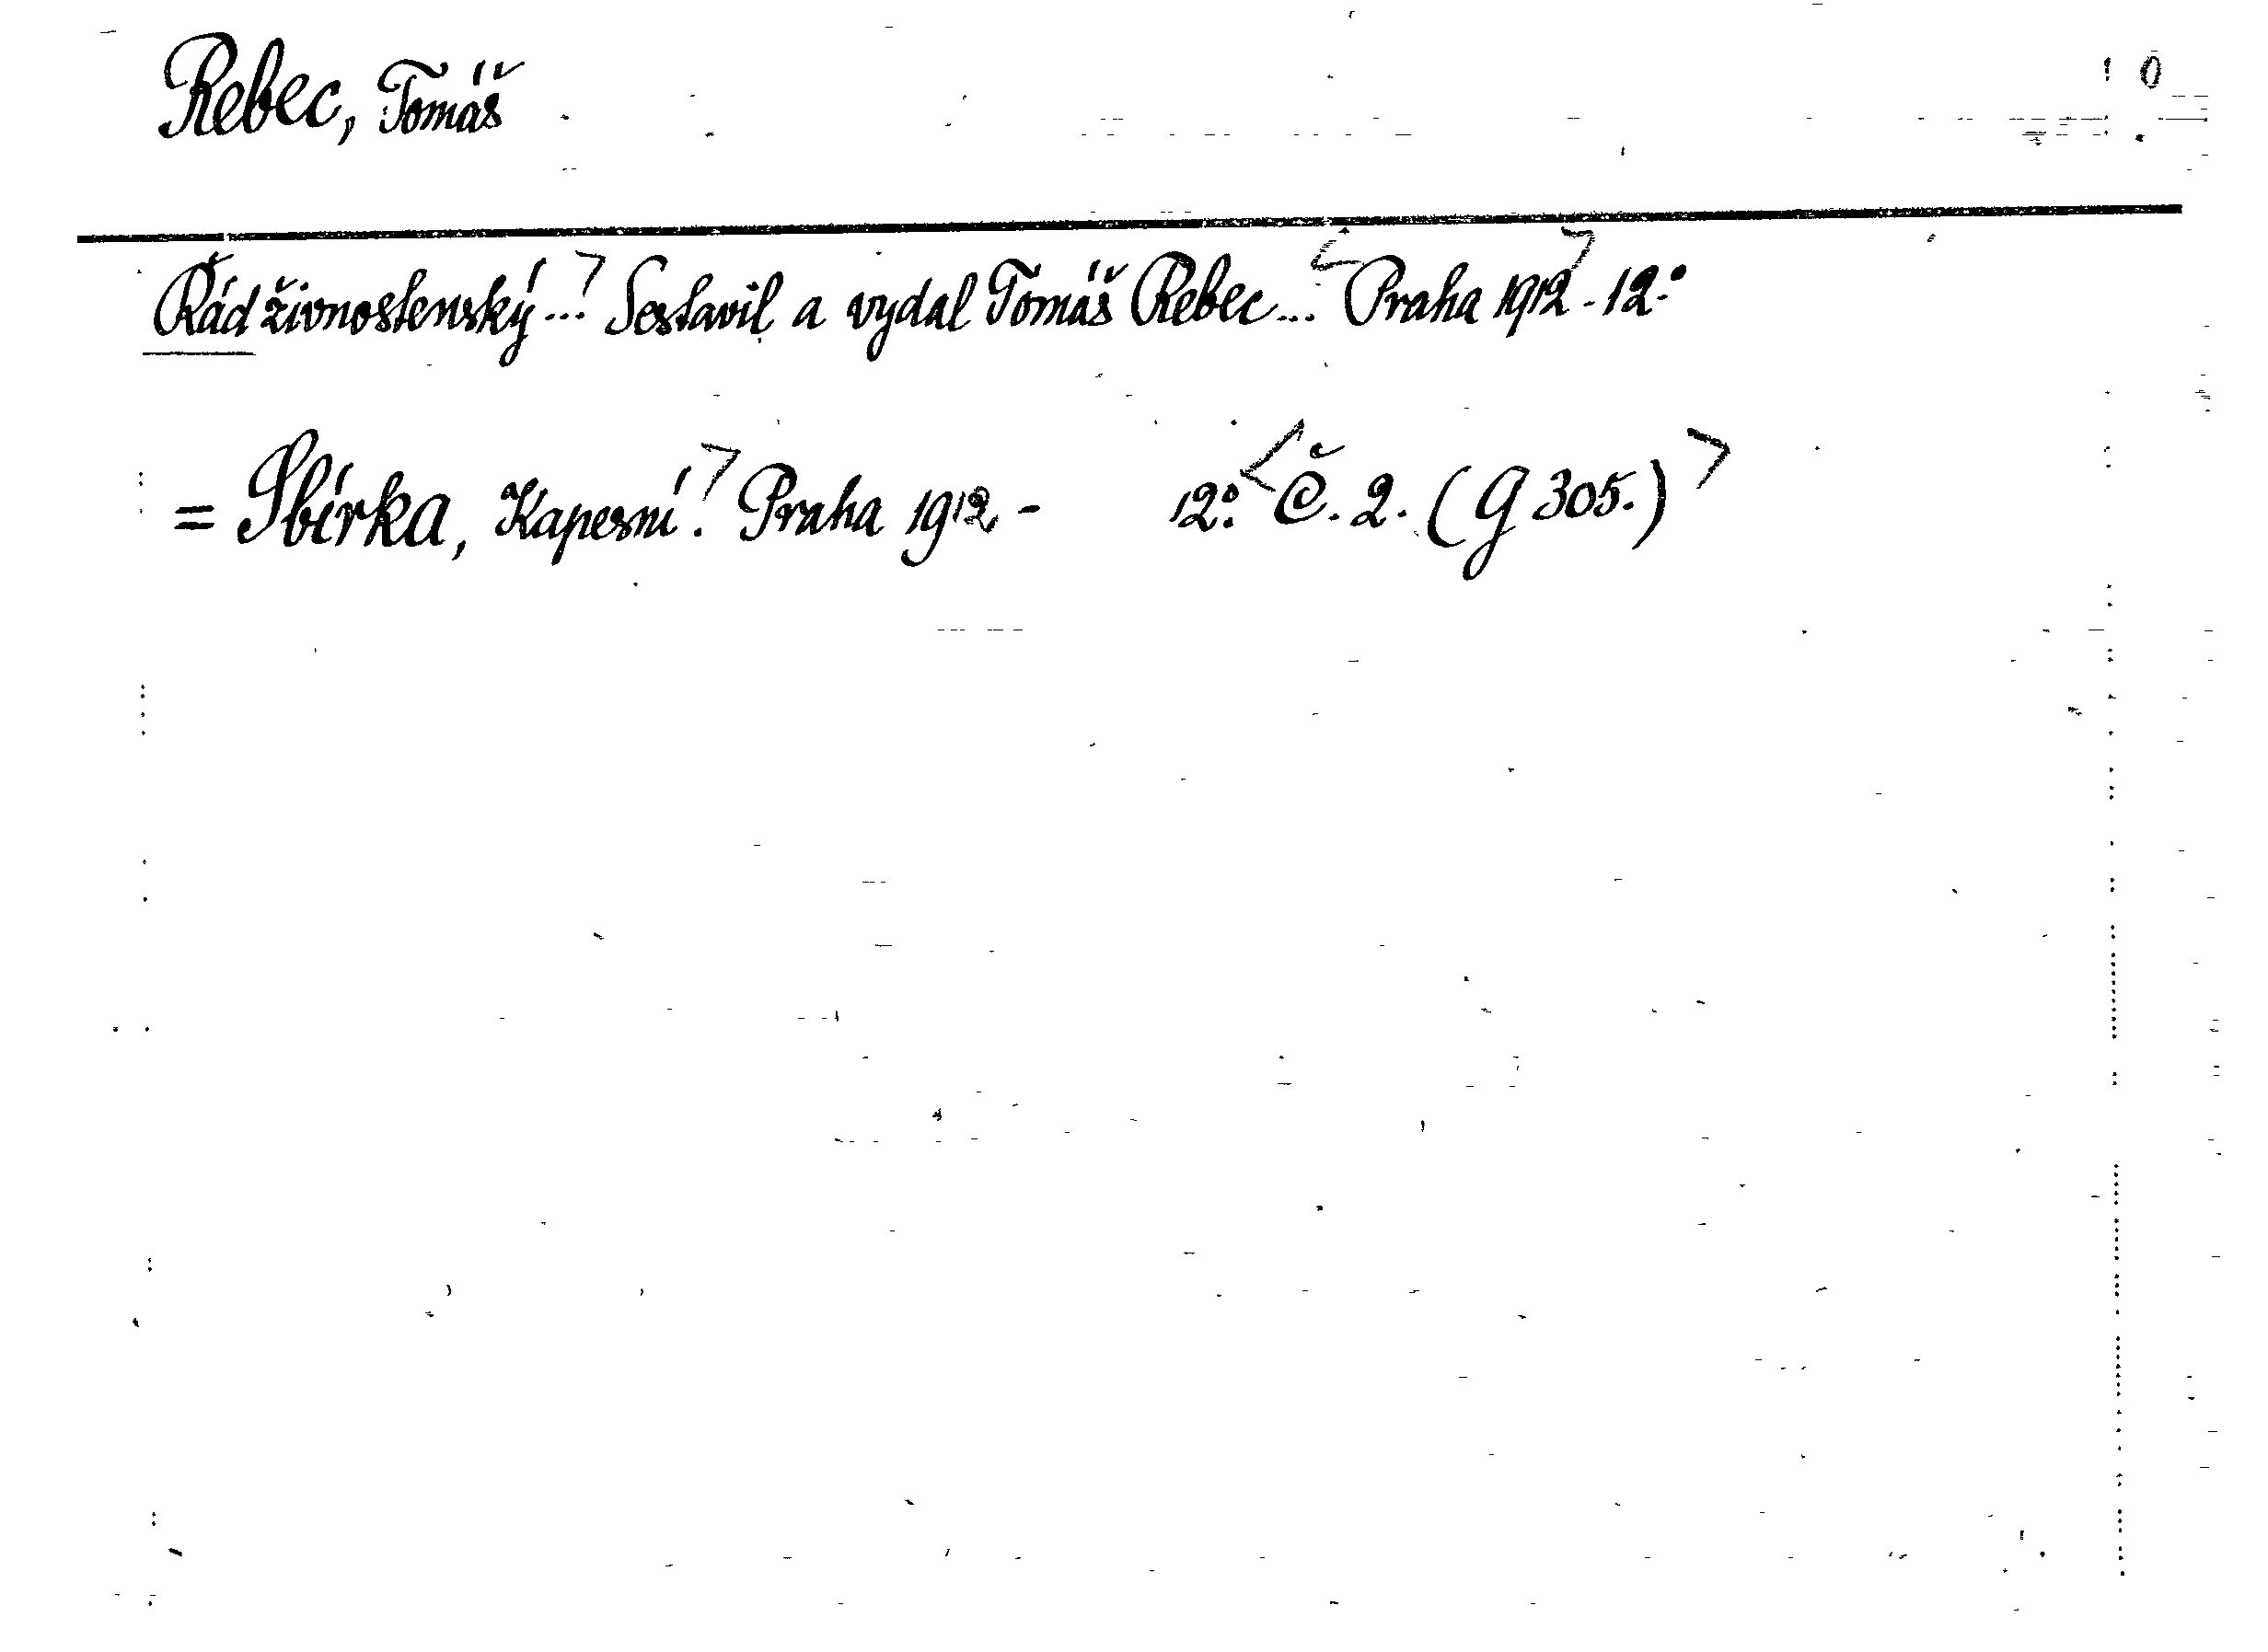 Rebec, Tomáš
Řád živnostenský... Sestavil a vydal Tomáš Rebec... Praha 1912. 12.°
= Sbírka, Kapesní. Praha 1912 - 12.° Č. 2. (G 305.)